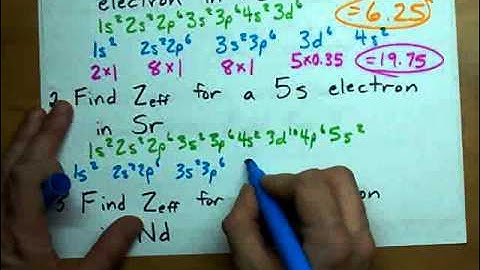 electron in
1s² 2s² 2p⁶ 3s² 3p⁶ 4s² 3d⁶ =6.25
1s² 2s²2p⁶ 3s²3p⁶ 3d⁶ 4s²
2×1 8×1 8×1 5×0.35 =19.75
2. Find Zeff for a 5s electron
in Sr
1s² 2s² 2p⁶ 3s² 3p⁶ 4s² 3d¹⁰ 4p⁶ 5s²
1s² 2s²2p⁶ 3s²3p⁶
Find Zeff for
Nd